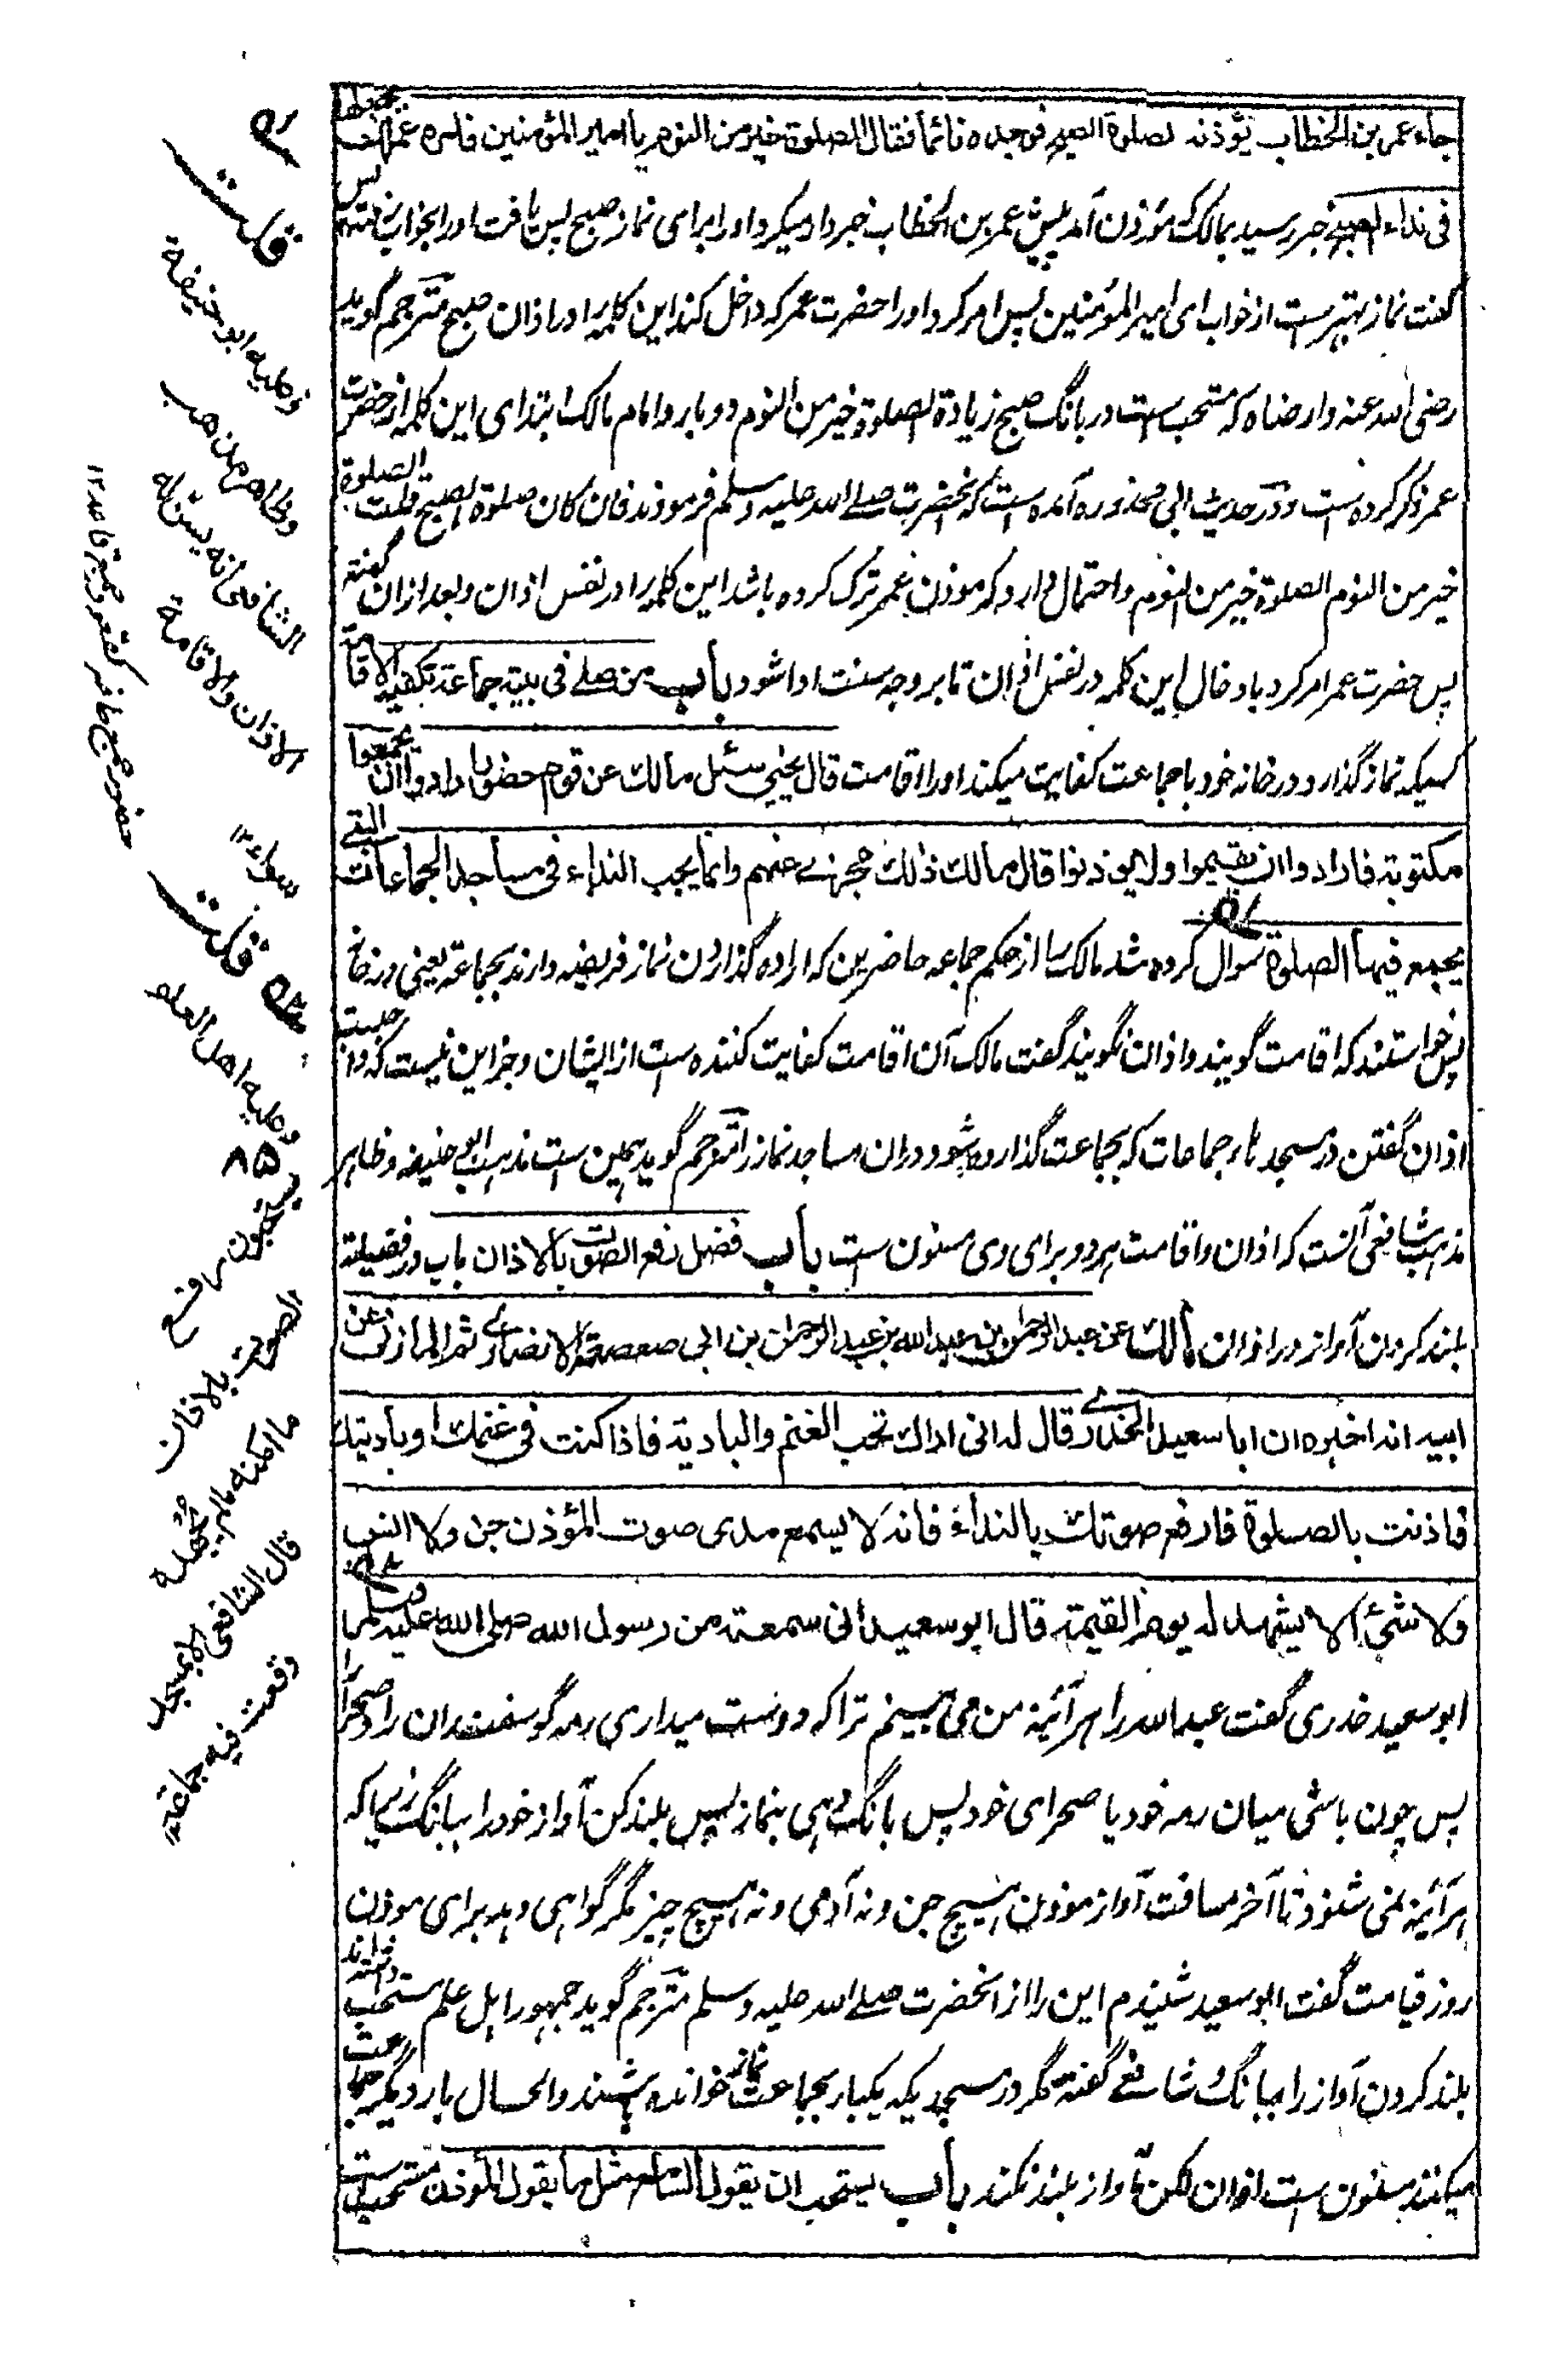 جاء عمر بن الخطاب يؤذنه لصلوة الصبح فوجده نائما فقال الصلوة خير من النوم يا امير المؤمنين فامره عمر ان يجعلها
فى نداء الصبح خبر رسيد بمالك كه مؤذن آمد پيش عمر بن الخطاب خبردار ميكرد او را براى نماز صبح پس يافت او را بخواب رفته پس
گفت نماز بهتر ست از خواب اى امير المؤمنين پس امر كرد او را حضرت عمر كه داخل كند اين كلمه را در اذان صبح مترجم گويد
رضى الله عنه وارضاه كه مستحب ست در بانگ صبح زيادة الصلوة خير من النوم دو بار و امام مالك ابتداى اين كلمه از حضرت
عمر ذكر كرده است و در حديث ابى محذوره آمده است كه آنحضرت صلے الله عليه وسلم فرمودند فان كان صلوة الصبح قلت الصلوة
خير من النوم الصلوة خير من النوم و احتمال دارد كه موذن عمر ترك كرده باشد اين كلمه را در نفس اذان و بعد ازان گفته
پس حضرت عمر امر كرد بادخال اين كلمه در نفس اذان تا بر وجه سنت ادا شود باب من صلے فى بيته جماعة تكفيه الاقامة
كسيكه نماز گذارد در خانه خود با جماعت كفايت ميكند او را اقامت قال يحيى سئل مالك عن قوم حضور ارادوا ان يجمعوا
مكتوبة فارادوا ان يقيموا ولا يؤذنوا قال مالك ذلك مجزئ عنهم وانما يجب النداء فى مساجد الجماعات التے
يجمع فيها الصلوة سوال كرده شد مالك را از حكم جماعه حاضرين كه اراده گذاردن نماز فريضه دارند بجماعة يعنى در خانه
پس خواستند كه اقامت گويند و اذان نگويند گفت مالك آن اقامت كفايت كننده ست از ايشان و جز اين نيست كه واجبست
اذان گفتن در مسجد ہاى جماعات كه بجماعت گذارده شود دران مساجد نماز را مترجم گويد ہمين ست مذہب ابى حنيفه و ظاہر
مذہب شافعى آنست كه اذان و اقامت ہردو براى وى مسنون ست باب فضل رفع الصوت بالاذان باب در فضيلة
بلند كردن آواز در اذان مالك عن عبد الرحمن بن عبد الله بن عبد الرحمن بن ابى صعصعة الانصارى ثم المازنى عن
ابيه انه اخبره ان ابا سعيد الخدرى قال له انى اراك تحب الغنم والبادية فاذا كنت فى غنمك او باديتك
فاذنت بالصلوة فارفع صوتك بالنداء فانه لا يسمع مدى صوت المؤذن جن ولا انس
ولا شئ الا يشهد له يوم القيمة قال ابو سعيد انى سمعته من رسول الله صلى الله عليه وسلم
ابو سعيد خدرى گفت عبد الله را ہر آئينه من مى بينم ترا كه دوست ميدارى رمه گوسفندان را و صحرا را
پس چون باشى ميان رمه خود يا صحراى خود پس بانگ دہى بنماز پس بلند كن آواز خود را ببانگ زيرا كه
ہر آئينه نمى شنود تا آخر مسافت آواز موذن ہيچ جن و نه آدمى و نه ہيچ چيز مگر گواہى دہد براى موذن
روز قيامت گفت ابو سعيد شنيدم اين را از آنحضرت صلے الله عليه وسلم مترجم گويد جمہور اہل علم مستحب دانسته اند
بلند كردن آواز را ببانگ شافعے گفته مگر در مسجديكه يكبار بجماعت نماز خوانده باشند و الحال بار ديگر جماعت
ميكنند مسنون ست اذان لكن آواز بلند نكند باب يستحب ان يقول السامع مثل ما يقول المؤذن مستحب ست
قلت
وعليه ابو حنيفة
وظاهر مذهب
الشافعى انه يسن له
الاذان والاقامة
سواء ١٢
حضور جمع حاضر كقعود جمع قاعد ١٢
قلت
وعليه اهل العلم
يستحبون رفع
الصوت بالاذان
ما امكنه ما لم يجهده
قال الشافعى الا بمسجد
وقعت فيه جماعة